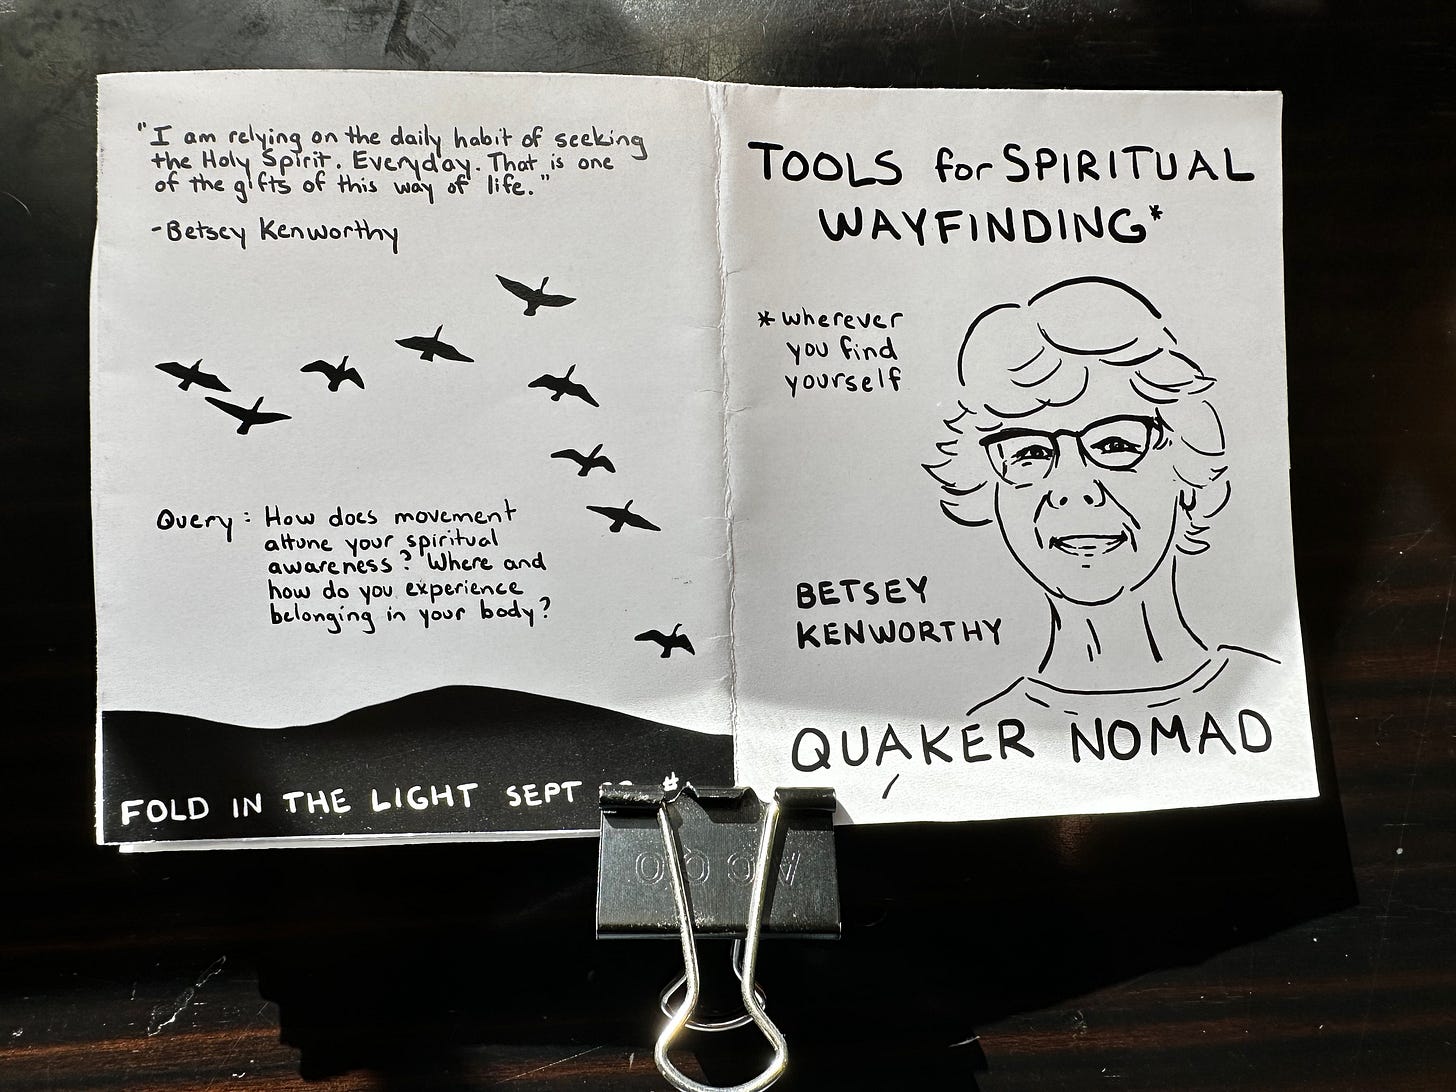 "I am relying on the daily habit of seeking
the Holy Spirit. Everyday. That is one
of the gifts of this way of life."
-Betsey Kenworthy
Query: How does movement
attune your spiritual
awareness? Where and
how do you experience
belonging in your body?
FOLD IN THE LIGHT SEPT #
TOOLS for SPIRITUAL
WAYFINDING*
*wherever
you find
yourself
BETSEY
KENWORTHY
QUAKER NOMAD